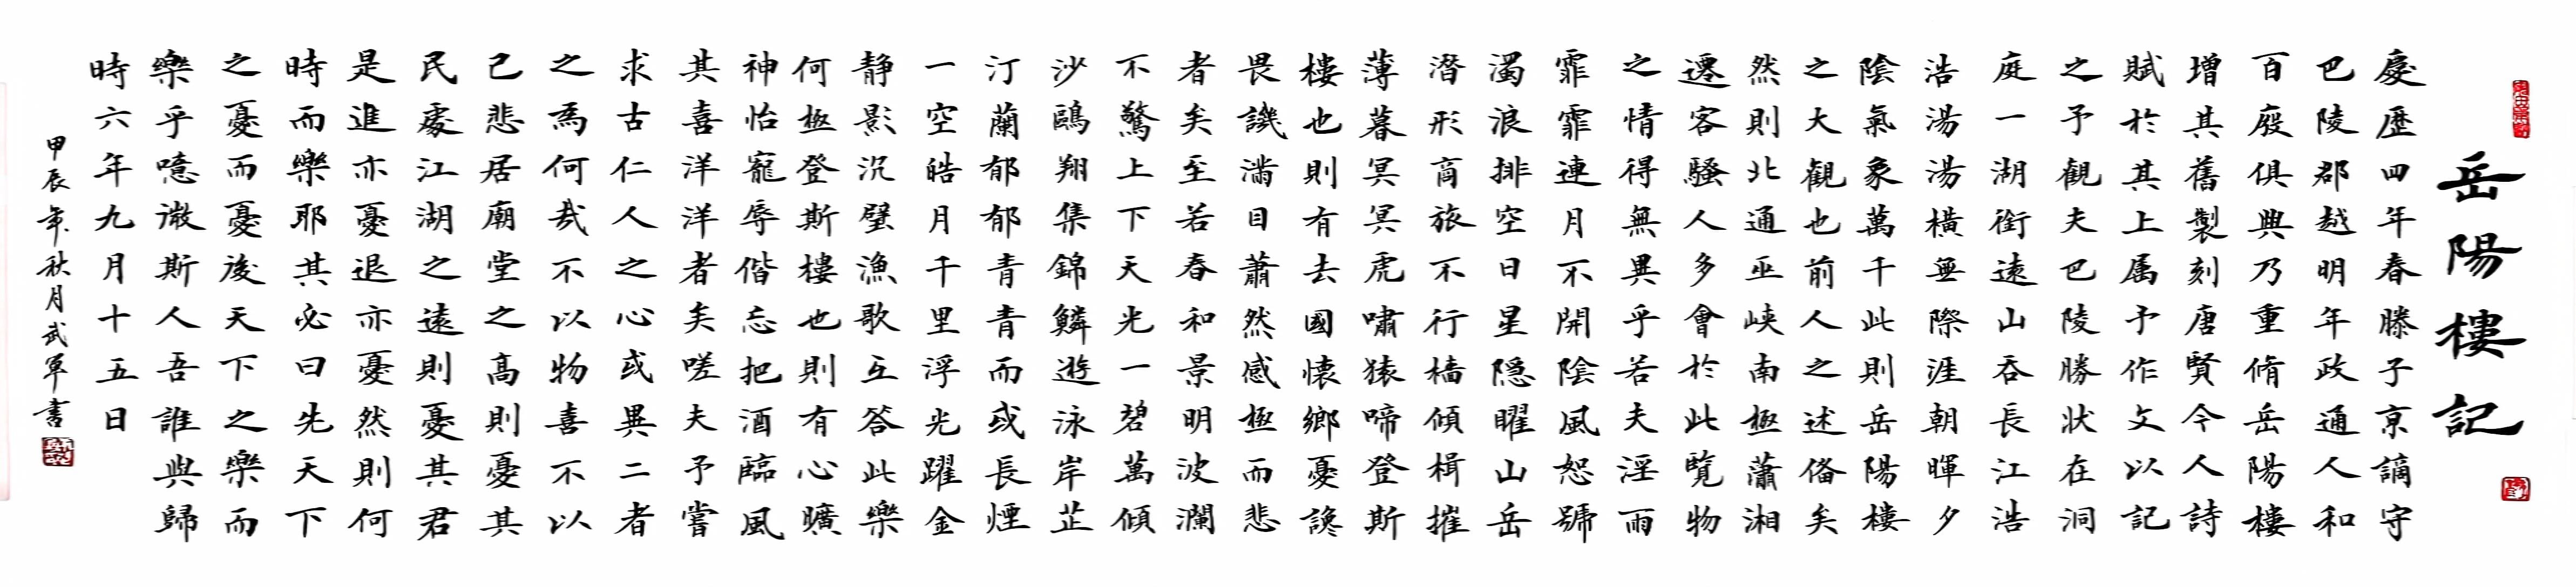 岳陽樓記
慶歷四年春滕子京謫守
巴陵郡越明年政通人和
百廢俱興乃重脩岳陽樓
增其舊製刻唐賢今人詩
賦於其上属予作文以記
之予觀夫巴陵勝狀在洞
庭一湖銜遠山吞長江浩
浩湯湯橫無際涯朝暉夕
陰氣象萬千此則岳陽樓
之大觀也前人之述俻矣
然則北通巫峽南極蕭湘
遷客騷人多會於此覽物
之情得無異乎若夫淫雨
霏霏連月不開陰風怒號
濁浪排空日星隱曜山岳
潛形商旅不行檣傾楫摧
薄暮冥冥虎嘯猿啼登斯
樓也則有去國懷鄉憂讒
畏譏滿目蕭然感極而悲
者矣至若春和景明波瀾
不驚上下天光一碧萬傾
沙鷗翔集錦鱗遊泳岸芷
汀蘭郁郁青青而或長煙
一空皓月千里浮光躍金
静影沉璧漁歌互答此樂
何極登斯樓也則有心曠
神怡寵辱偕忘把酒臨風
其喜洋洋者矣嗟夫予嘗
求古仁人之心或異二者
之為何哉不以物喜不以
己悲居廟堂之高則憂其
民處江湖之遠則憂其君
是進亦憂退亦憂然則何
時而樂耶其必曰先天下
之憂而憂後天下之樂而
樂乎噫微斯人吾誰與歸
時六年九月十五日
甲辰年秋月武軍書